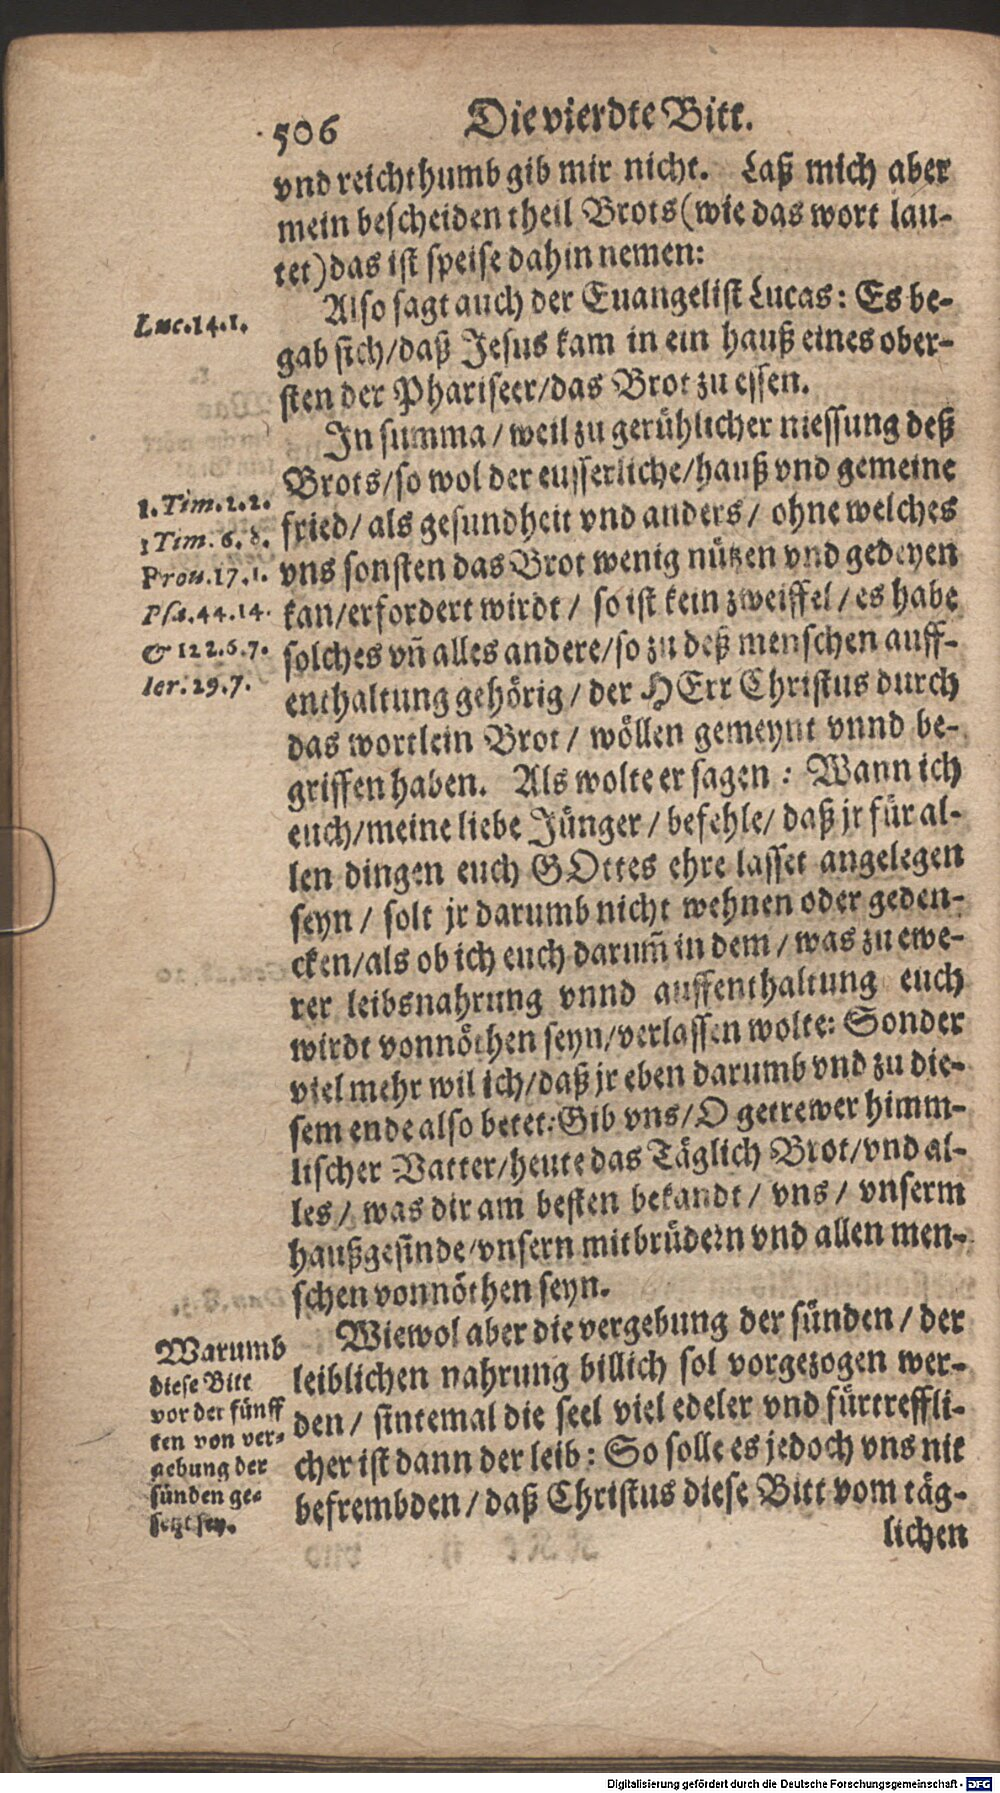 506 Die vierdte Bitt.
vnd reichthumb gib mir nicht. Laß mich aber
mein bescheiden theil Brots (wie das wort lau-
tet) das ist speise dahin nemen:
Also sagt auch der Euangelist Lucas: Es be-
Luc.14.1.
gab sich/daß Jesus kam in ein hauß eines ober-
sten der Phariseer/das Brot zu essen.
In summa/ weil zu gerühlicher niessung deß
Brots/so wol der eusserliche/hauß vnd gemeine
1.Tim.2.2.
fried/ als gesundheit vnd anders/ ohne welches
1 Tim. 6. 8.
vns sonsten das Brot wenig nützen vnd gedeyen
Prou.17.1.
kan/erfordert wirdt/ so ist kein zweiffel/ es habe
Psa.44.14.
solches vñ alles andere/so zu deß menschen auff-
& 122.6.7.
enthaltung gehörig/ der HErr Christus durch
Ier.29.7.
das wortlein Brot/ wöllen gemeynt vnnd be-
griffen haben. Als wolte er sagen: Wann ich
euch/meine liebe Jünger/ befehle/ daß jr für al-
len dingen euch GOttes ehre lasset angelegen
seyn/ solt jr darumb nicht wehnen oder geden-
cken/als ob ich euch darum̃ in dem/ was zu ewe-
rer leibsnahrung vnnd auffenthaltung euch
wirdt vonnöthen seyn/verlassen wolte: Sonder
viel mehr wil ich/daß jr eben darumb vnd zu die-
sem ende also betet: Gib vns/ O getrewer himm-
lischer Vatter/heute das Täglich Brot/vnd al-
les/ was dir am besten bekandt/ vns/ vnserm
haußgesinde/vnsern mitbrüdern vnd allen men-
schen vonnöthen seyn.
Wiewol aber die vergebung der sünden/ der
leiblichen nahrung billich sol vorgezogen wer-
den/ sintemal die seel viel edeler vnd fürtreffli-
cher ist dann der leib: So solle es jedoch vns nit
befrembden/ daß Christus diese Bitt vom täg-
Warumb
diese Bitt
vor der fünff
ten von ver-
gebung der
sünden ge-
setzt sey.
lichen
Digitalisierung gefördert durch die Deutsche Forschungsgemeinschaft - DFG